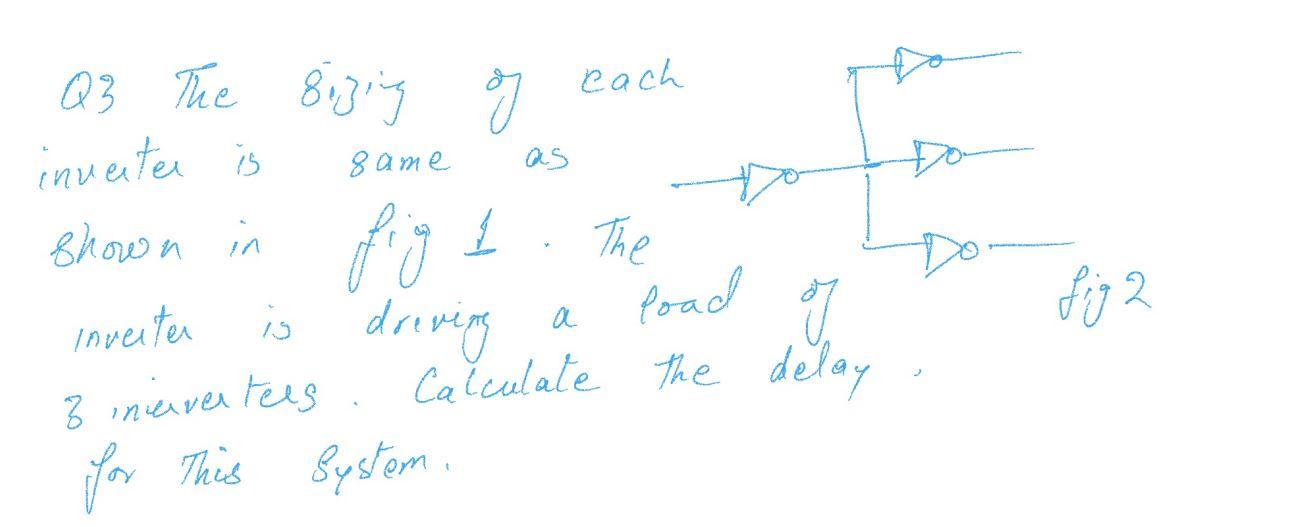 Q3 The Sizing of each
inverter is same as
shown in fig 1. The
inverter is driving a load of
3 inververters. Calculate the delay.
for This System.
fig 2